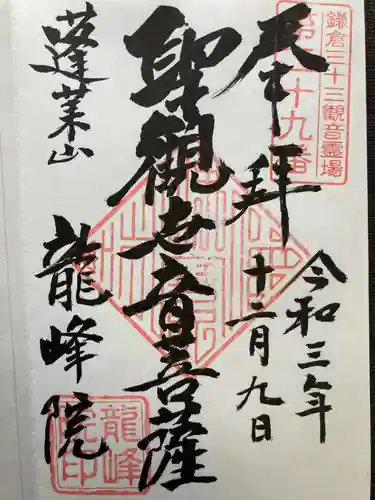 鎌倉三十三觀音霊場
第二十九番
奉拝
令和三年
十二月九日
聖觀世音菩薩
蓬莱山
龍峰院
龍峰
院印